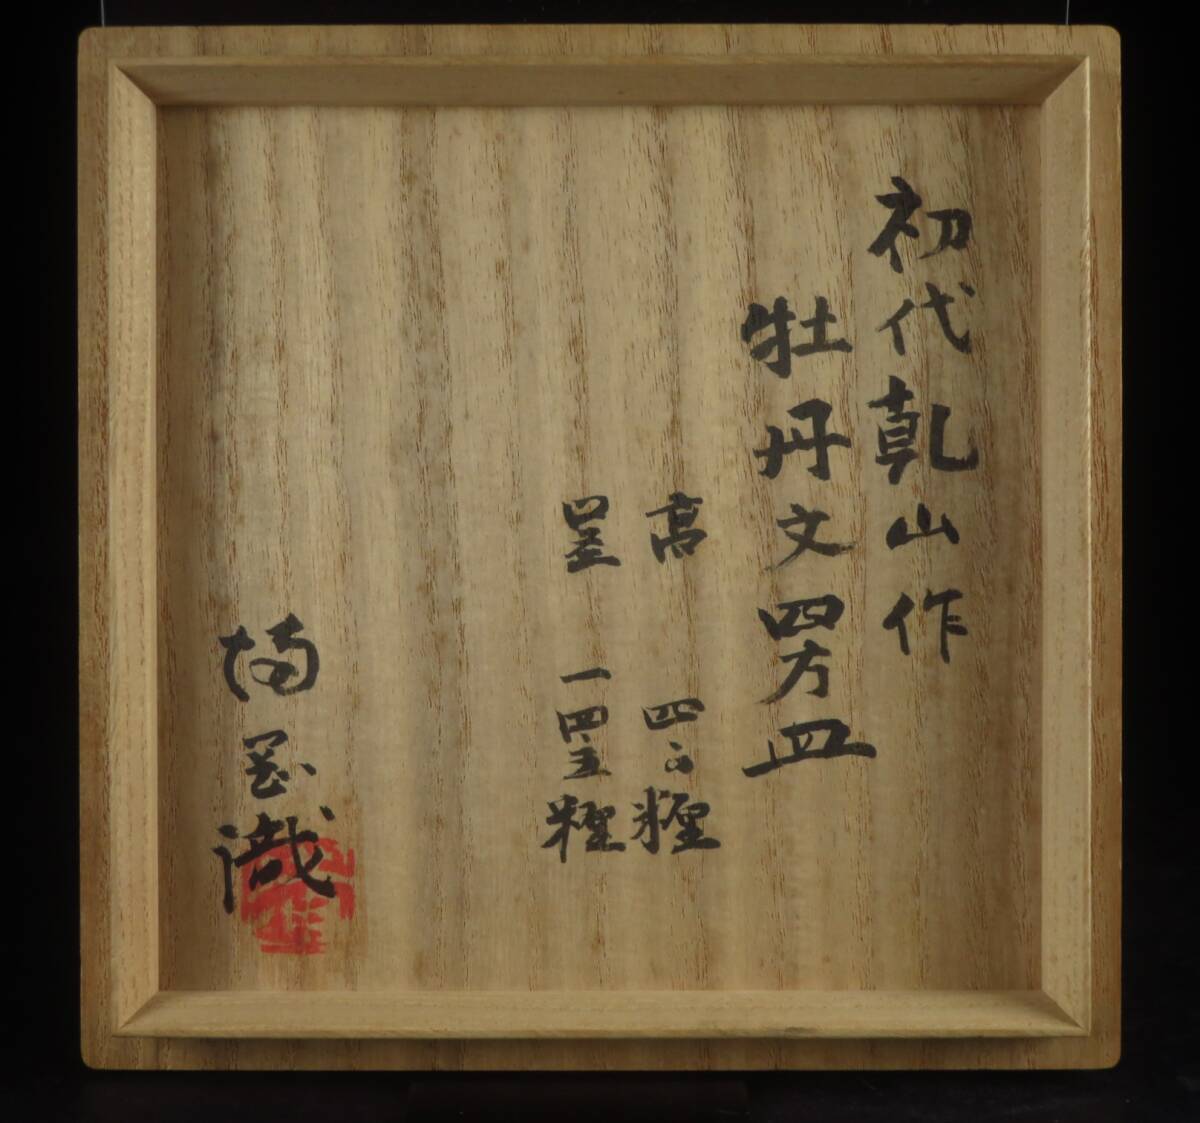 初代乾山作
牡丹文四方皿
高 四・六糎
一四・五糎
満岡識